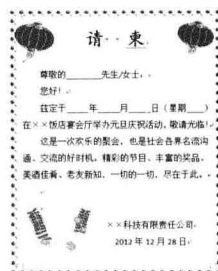 请 柬
尊敬的________先生/女士，
您好！
兹定于____年____月____日（星期____）
在××饭店宴会厅举办元旦庆祝活动，敬请光临！
这是一次欢乐的聚会，也是社会各界名流沟
通、交流的好时机。精彩的节目、丰富的奖品、
美酒佳肴、老友新知，一切的一切，尽在于此。
××科技有限责任公司
2012 年 12 月 28 日